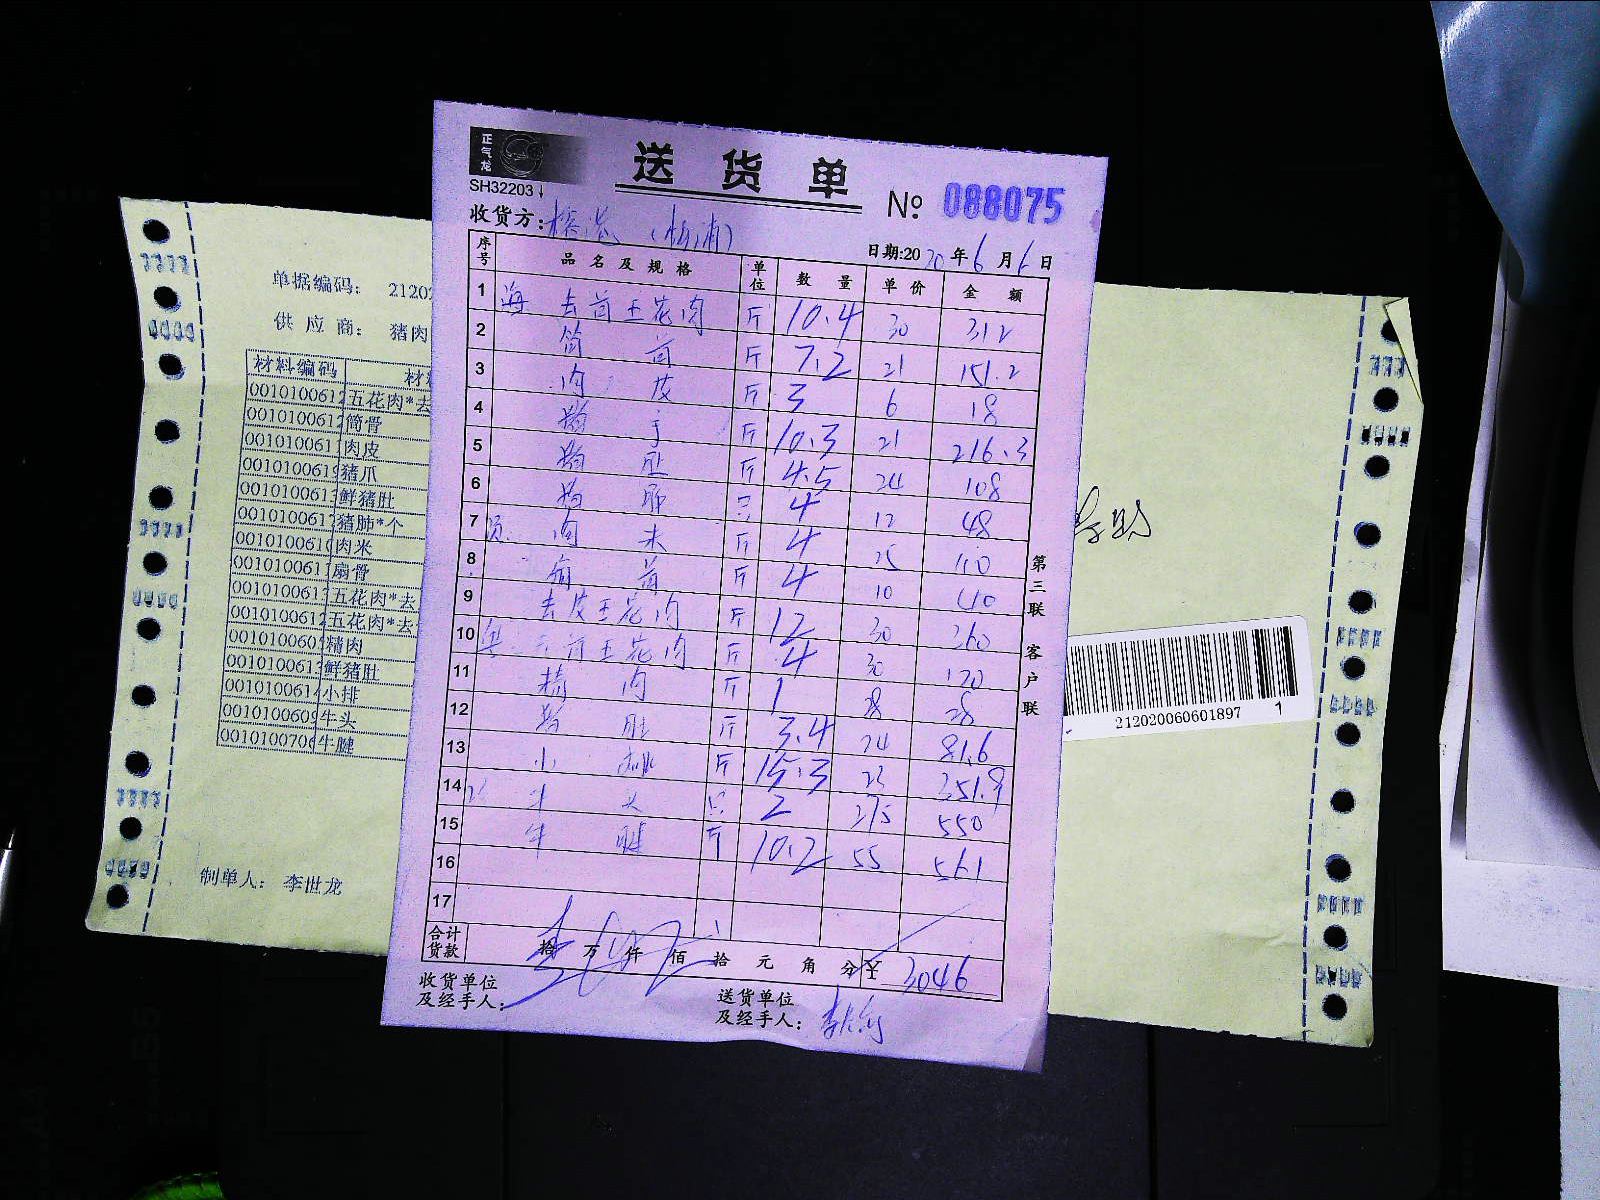 正气龙
送货单
SH32203
№ 088075
收货方:
日期:2020年6月6日
序号 品名及规格 单位 数量 单价 金额
1 海 去骨五花肉 斤 10.4 30 312
2 筒骨 斤 7.2 21 151.2
3 肉皮 斤 3 6 18
4 猪手 斤 10.3 21 216.3
5 猪肚 斤 4.5 24 108
6 猪肺 只 4 12 48
7 肉末 斤 4 25
8 扇骨 斤 4 10 40
9 去皮五花肉 斤 12 30 360
10 去骨五花肉 斤 4 30 120
11 精肉 斤 1 28 28
12 猪肚 斤 3.4 24 81.6
13 小排 斤 15.3 23 351.9
14 牛头 只 2 275 550
15 牛腱 斤 10.2 55 561
16
17
合计货款 拾 万 仟 佰 拾 元 角 分 ¥ 3046
收货单位及经手人:
送货单位及经手人:
第三联 客户联
单据编码: 21202
供应商: 猪肉
材料编码 材
0010100612 五花肉*去
001010061 筒骨
001010061 肉皮
001010061 猪爪
001010061 鲜猪肚
001010061 猪肺*个
001010061 肉米
001010061 扇骨
001010061 五花肉*去
001010061 五花肉*去
001010060 精肉
001010061 鲜猪肚
001010061 小排
001010060 牛头
001010070 牛腱
制单人: 李世龙
212020060601897 1